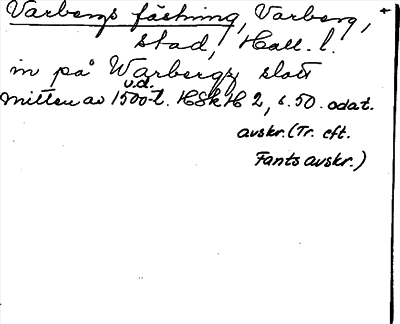 Varbergs fästning, Varberg, +
stad, Hall. l.
in på Warbergz slott
u.d.
mitten av 1500-t. HSkH 2, s. 50. odat.
avskr. (Tr. eft.
Fants avskr.)